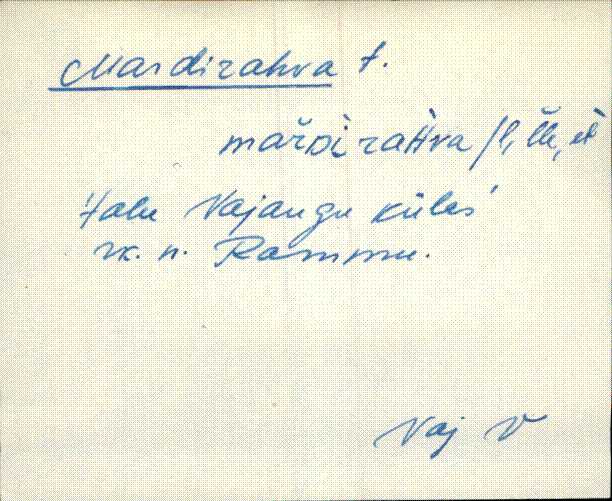 Mardirahva t.
mařDi raHva /l, lle, st
Talu Vajangu külas
rk. n. Rammu.
Vaj V